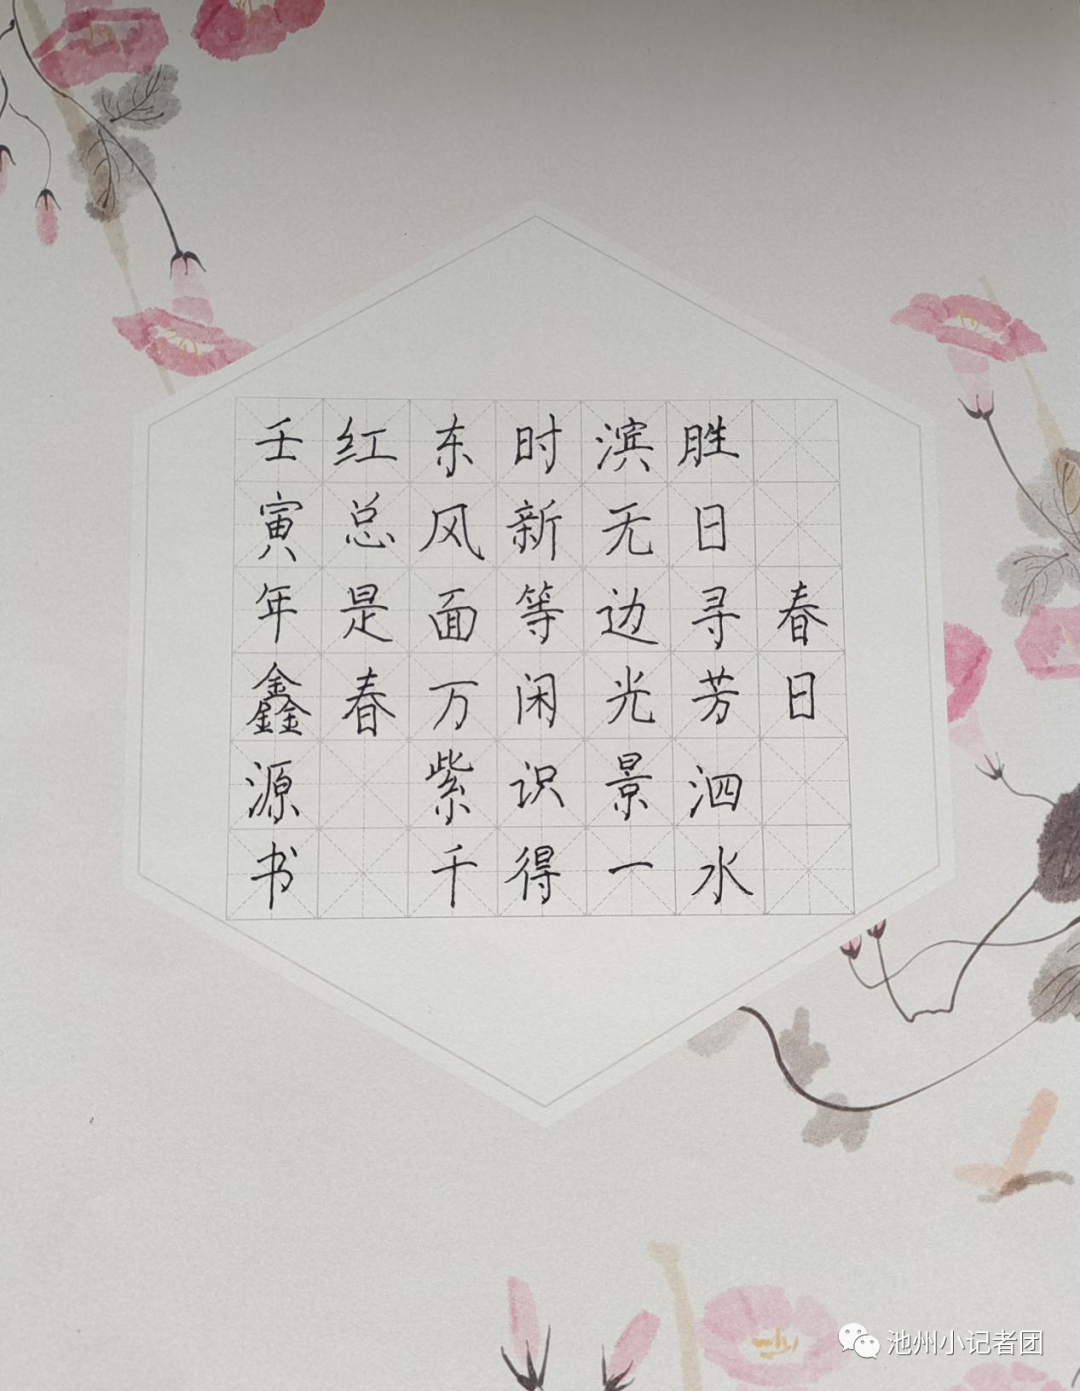 春日
胜日寻芳泗水
滨无边光景一
时新等闲识得
东风面万紫千
红总是春
壬寅年鑫源书
池州小记者团